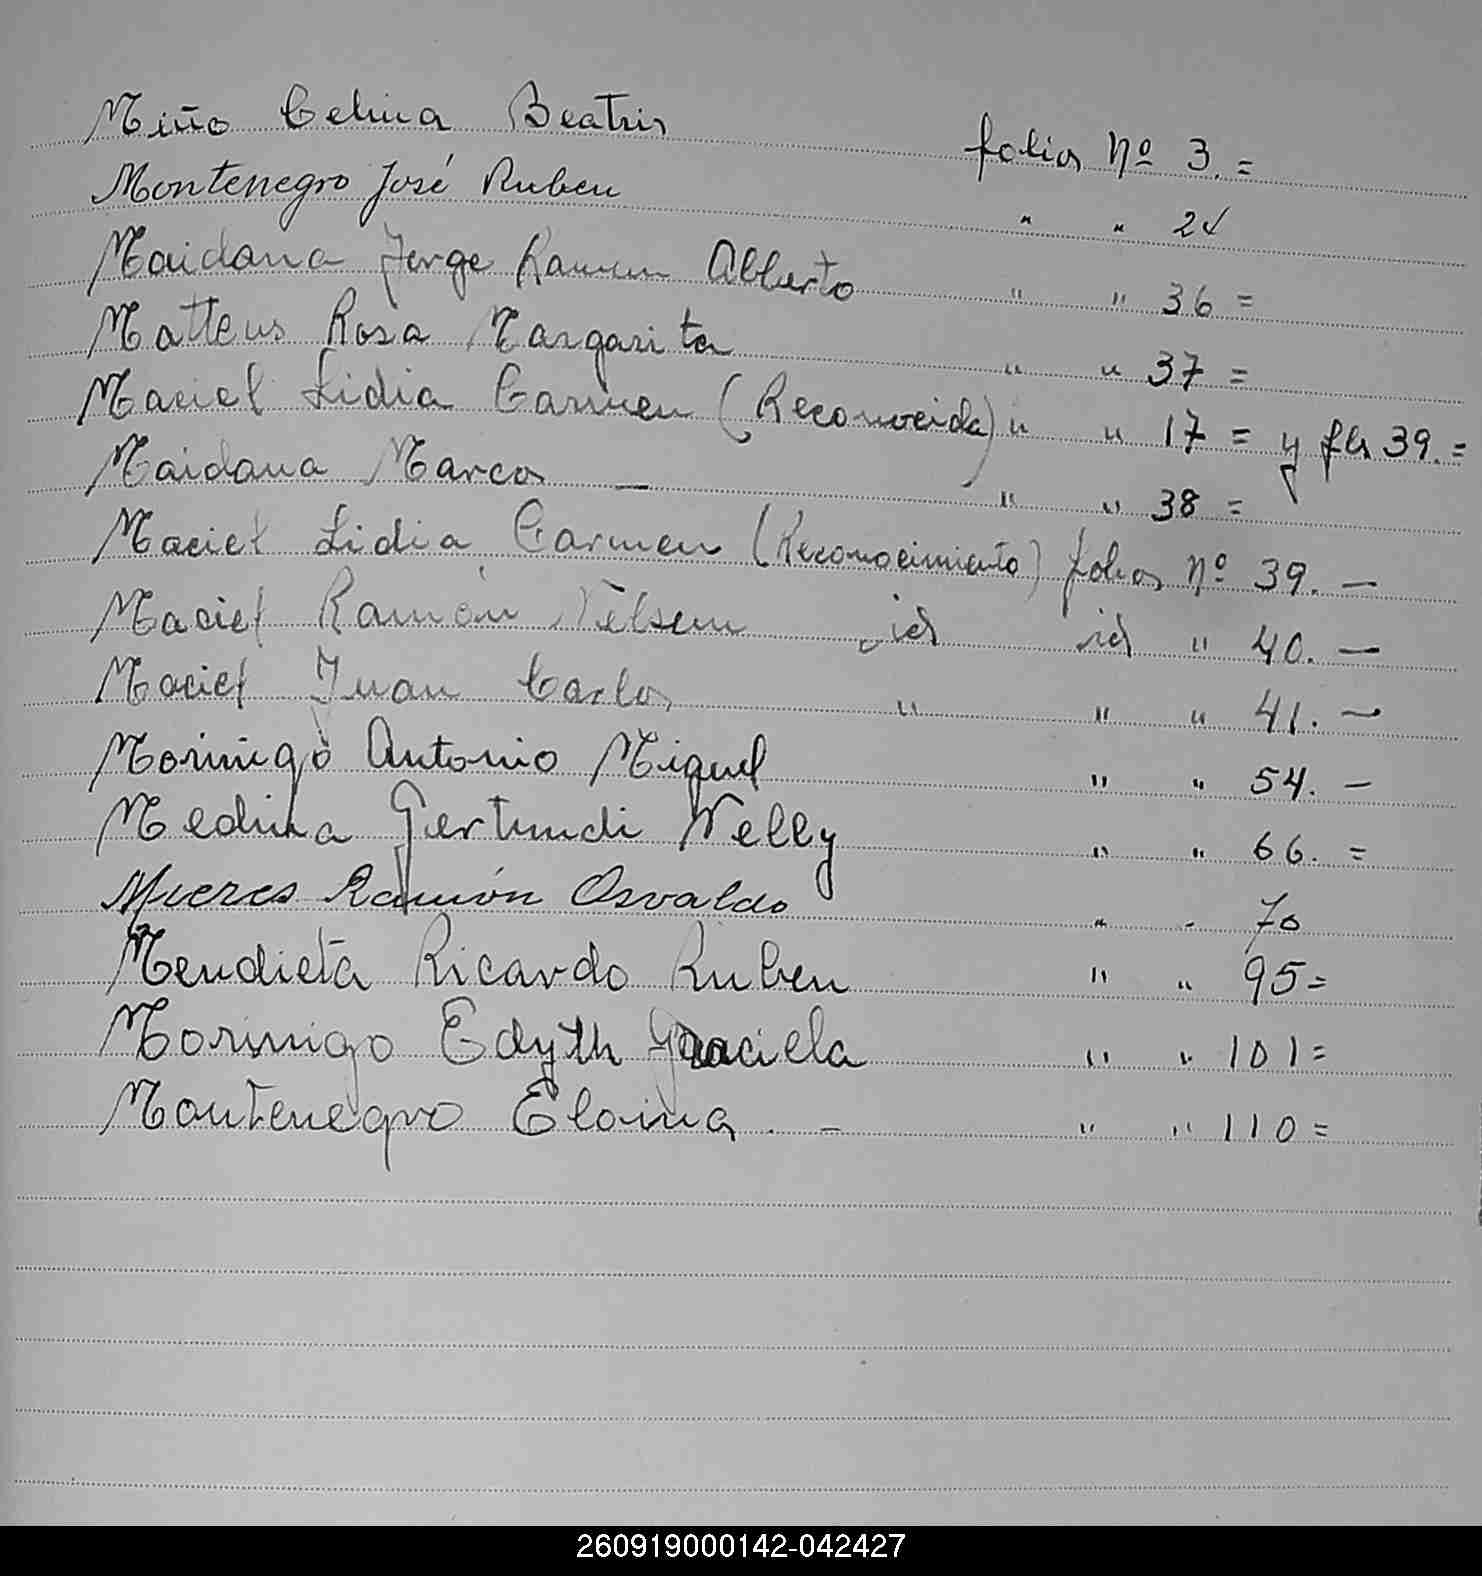 Miño Celina Beatris folios Nº 3.=
Montenegro José Ruben " " 24
Maidana Jorge Ramon Alberto " " 36 =
Matteus Rosa Margarita " " 37 =
Maciel Lidia Carmen (Reconocida) " " 17 = y fls 39.=
Maidana Marcos — " " 38 =
Maciel Lidia Carmen (Reconocimiento) folios Nº 39. —
Maciel Ramón Nelsem id id " 40. —
Maciel Juan Carlos " " " 41. —
Morinigo Antonio Miguel " " 54. —
Medina Gertrudi Nelly " " 66. =
Mieres Ramón Osvaldo " " 70
Mendieta Ricardo Ruben " " 95=
Morinigo Edyth Graciela " " 101=
Montenegro Eloina. — " " 110=
260919000142-042427